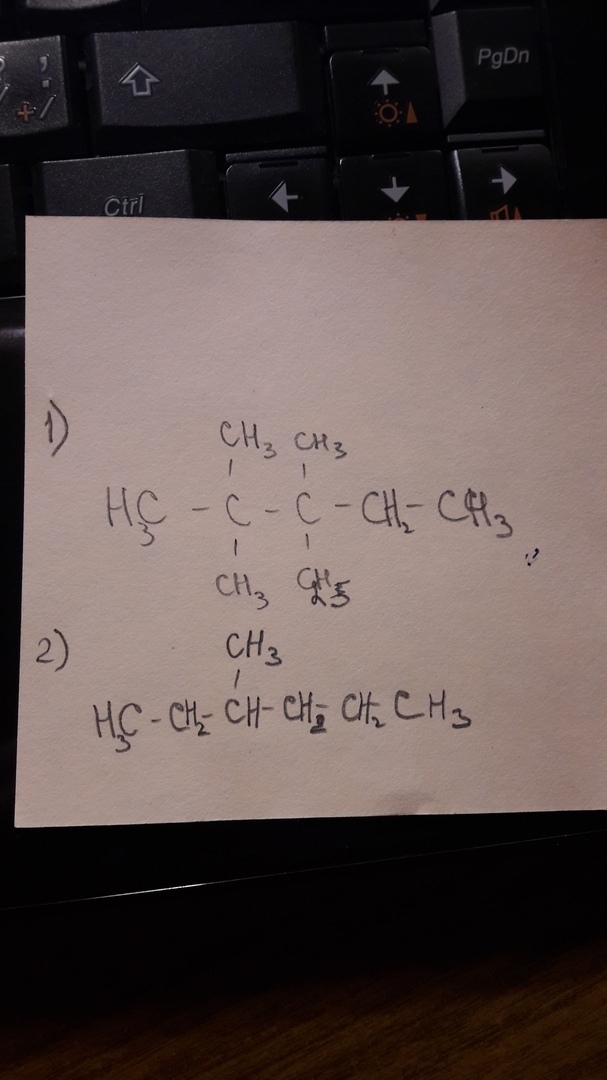 PgDn
Ctrl
1)
CH3 CH3
H3C - C - C - CH2 - CH3
CH3 C2H5
2)
CH3
H3C - CH2 - CH - CH2 - CH2 CH3